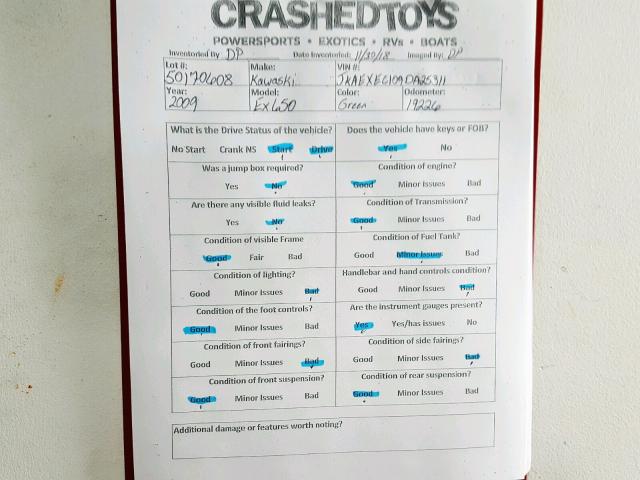 CRASHEDTOYS
POWERSPORTS • EXOTICS • RVs • BOATS
Inventoried By DP Date Inventoried: 11/30/18 Imaged By: DP
Lot #: Make: VIN #:
50170608 Kawaski JKAEXEC109DA25311
Year: Model: Color: Odometer:
2009 EX650 Green 19226
What is the Drive Status of the vehicle? Does the vehicle have keys or FOB?
No Start Crank NS Start Drive Yes No
Was a jump box required? Condition of engine?
Yes No Good Minor Issues Bad
Are there any visible fluid leaks? Condition of Transmission?
Yes No Good Minor Issues Bad
Condition of visible Frame Condition of Fuel Tank?
Good Fair Bad Good Minor Issues Bad
Condition of lighting? Handlebar and hand controls condition?
Good Minor Issues Bad Good Minor Issues Bad
Condition of the foot controls? Are the instrument gauges present?
Good Minor Issues Bad Yes Yes/has issues No
Condition of front fairings? Condition of side fairings?
Good Minor Issues Bad Good Minor Issues Bad
Condition of front suspension? Condition of rear suspension?
Good Minor Issues Bad Good Minor Issues Bad
Additional damage or features worth noting?